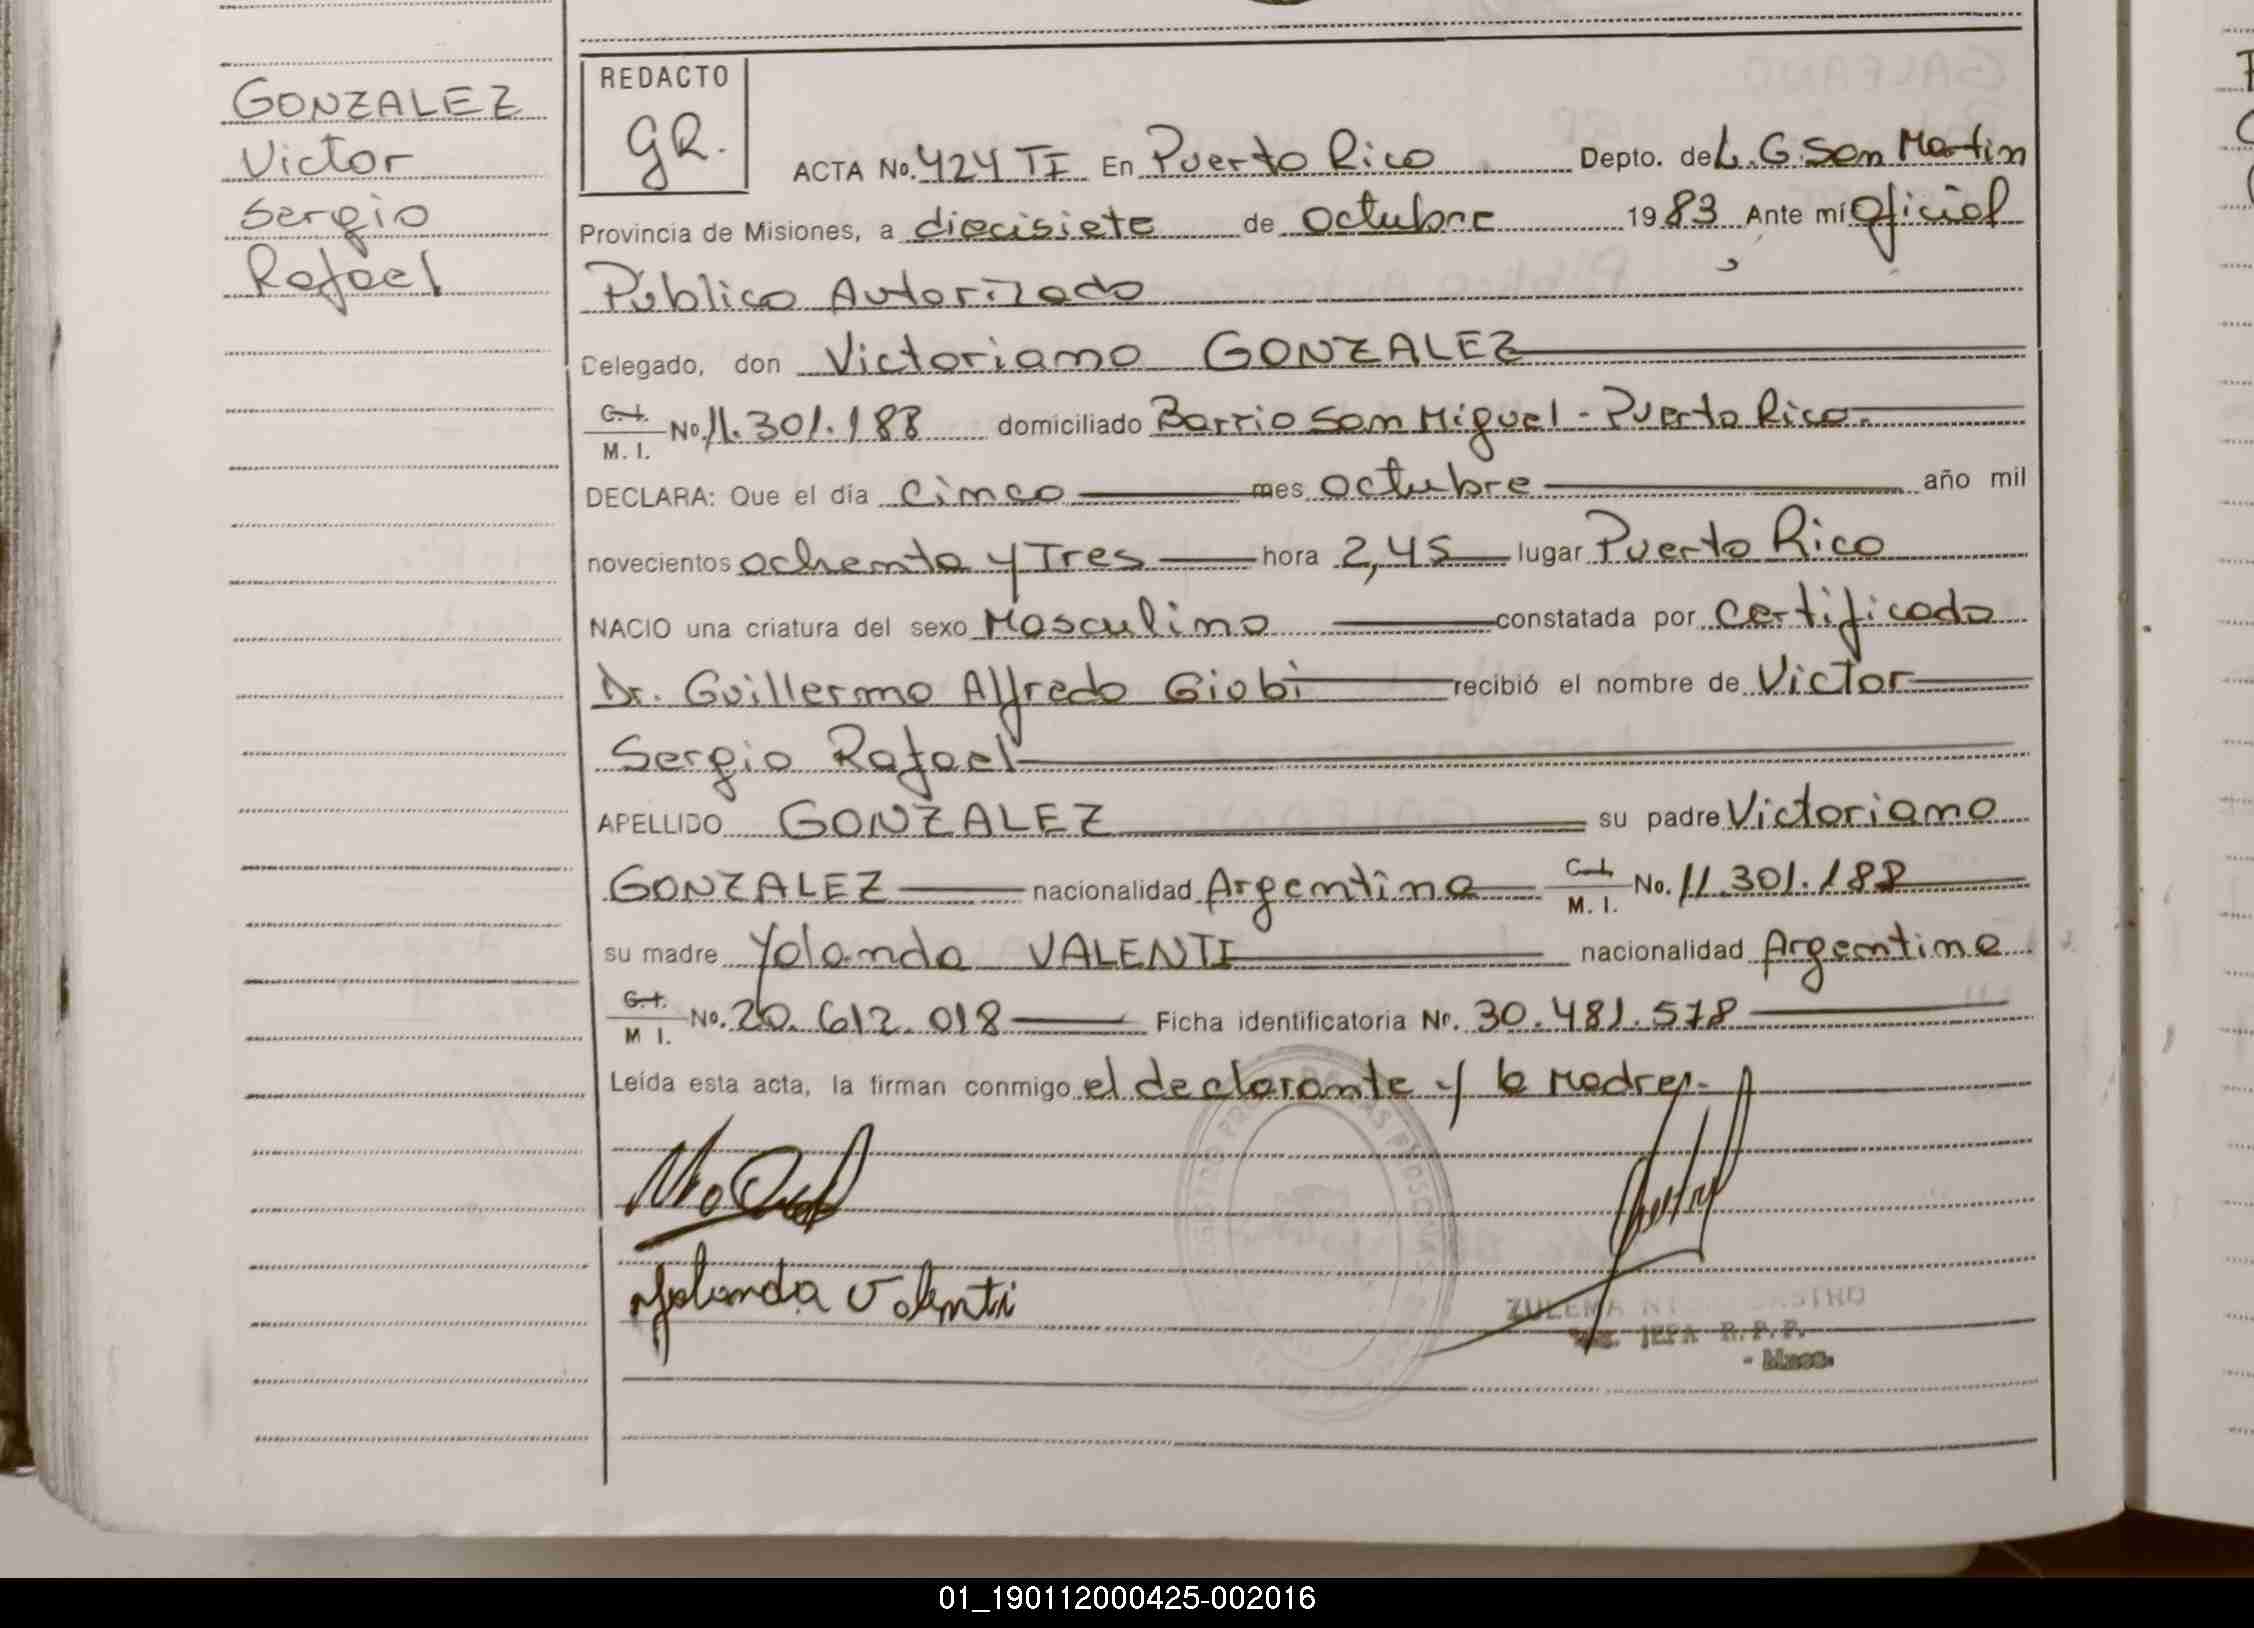 GONZALEZ
Victor
Sergio
Rafael
REDACTO
GR.
ACTA No. 424 TI En Puerto Rico Depto. de L. G. San Martin
Provincia de Misiones, a diecisiete de octubre 1983 Ante mí Oficial
Público Autorizado
Delegado, don Victoriano GONZALEZ
C.I.
M. I. No. 11.301.188 domiciliado Barrio San Miguel - Puerto Rico.
DECLARA: Que el día cinco mes octubre año mil
novecientos ochenta y Tres hora 2,45 lugar Puerto Rico
NACIO una criatura del sexo Masculino constatada por certificado
Dr. Guillermo Alfredo Giobi recibió el nombre de Victor
Sergio Rafael
APELLIDO GONZALEZ su padre Victoriano
GONZALEZ nacionalidad Argentina C.I.
M. I. No. 11.301.188
su madre Yolanda VALENTI nacionalidad Argentina
C.I.
M I. No. 20.612.018 Ficha identificatoria Nº. 30.481.578
Leída esta acta, la firman conmigo el declarante y la Madre.-
Yolanda Valenti
ZULEMA
JEFA R.P.P.
01_190112000425-002016